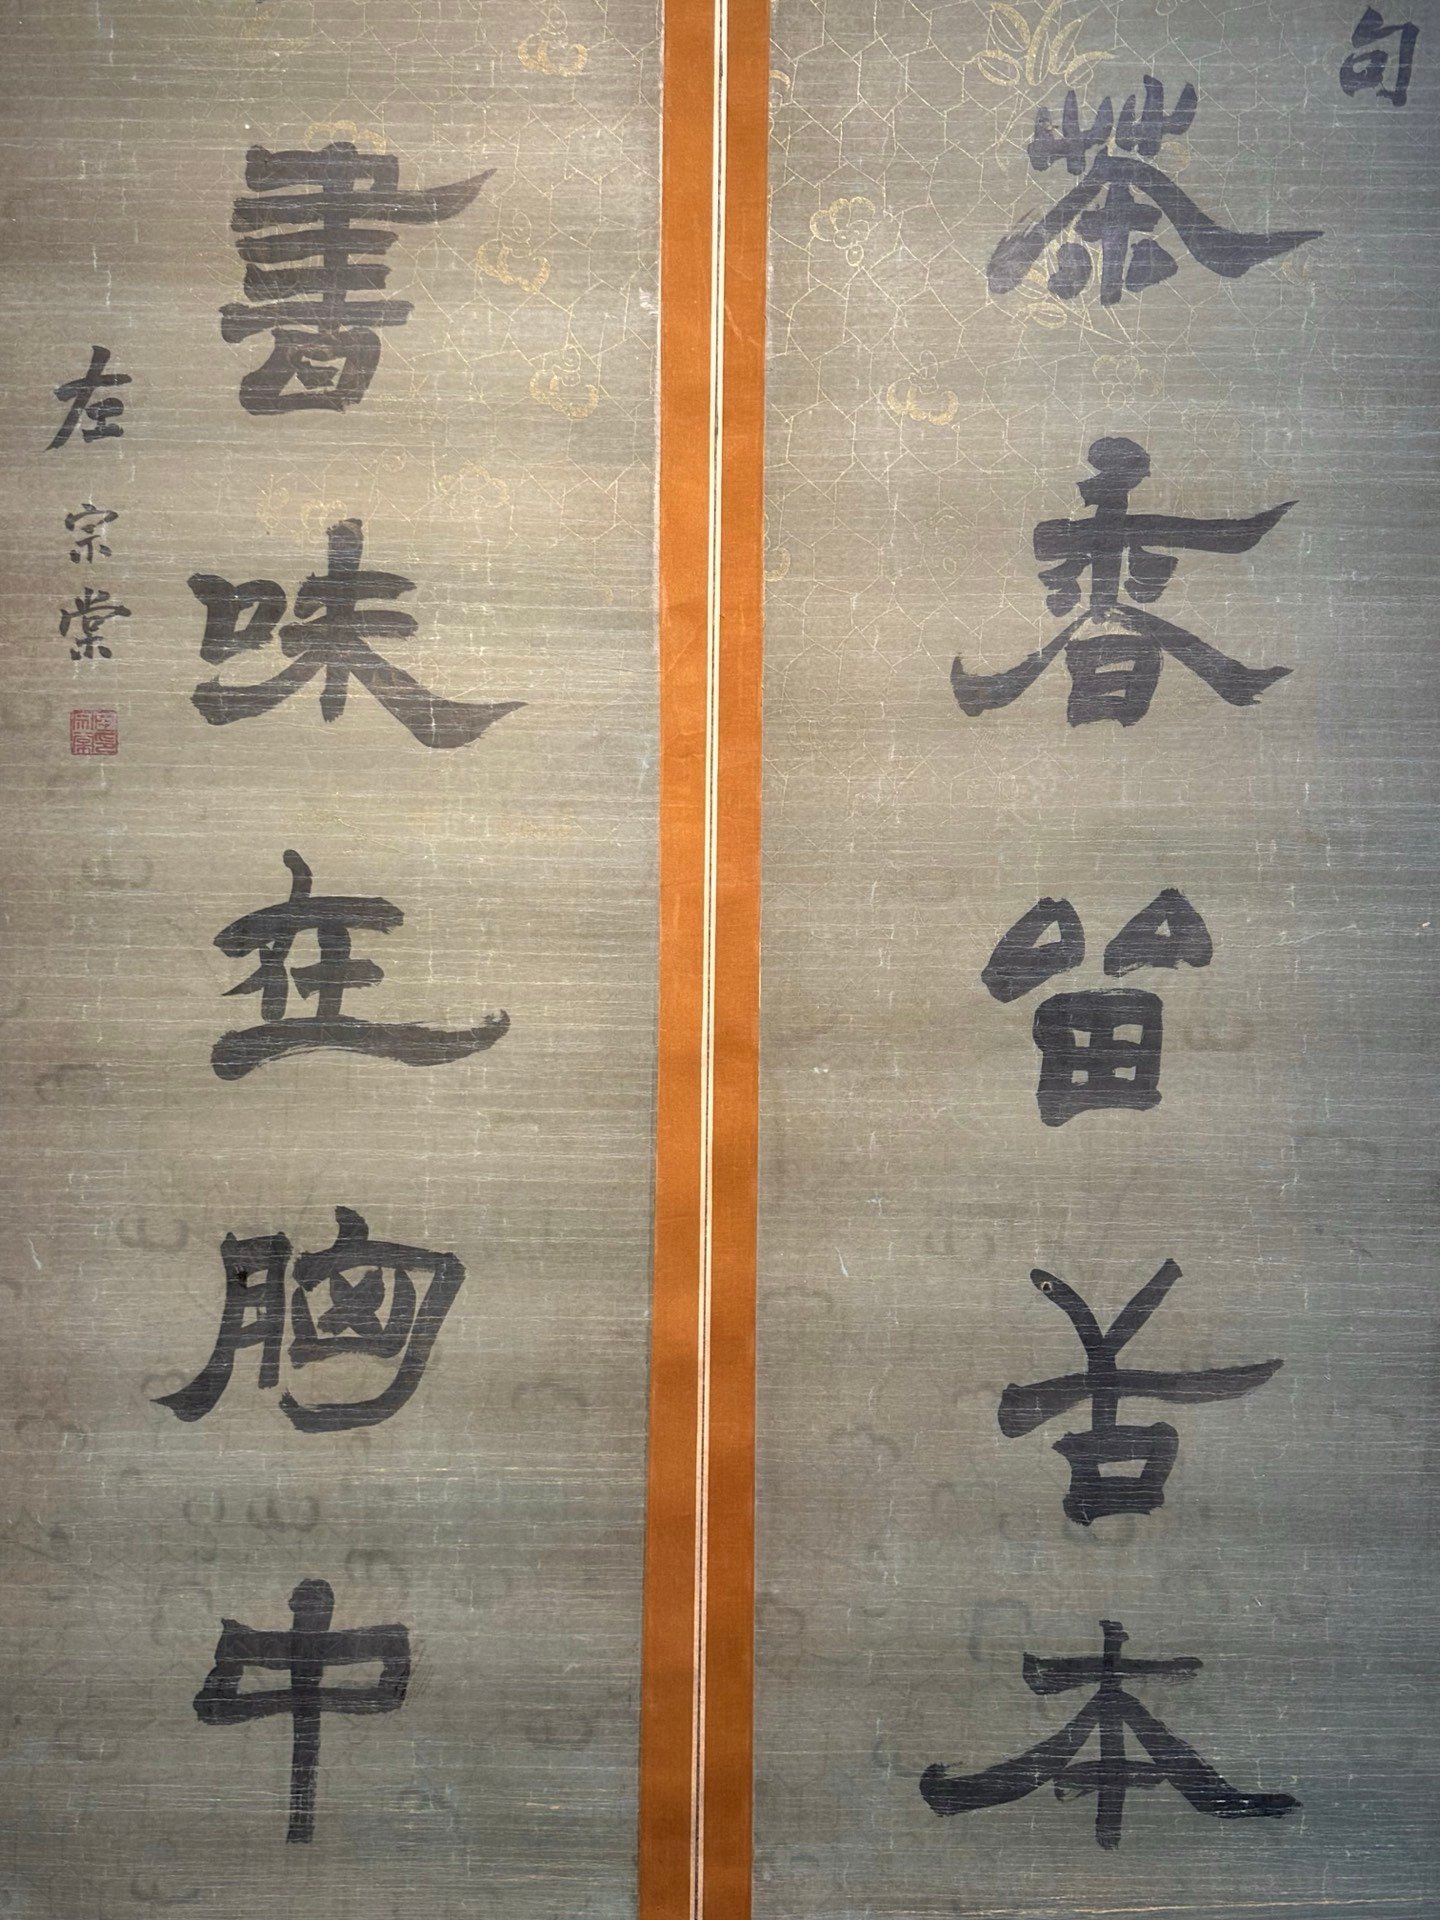 句
茶香留舌本
書味在胸中
左宗棠